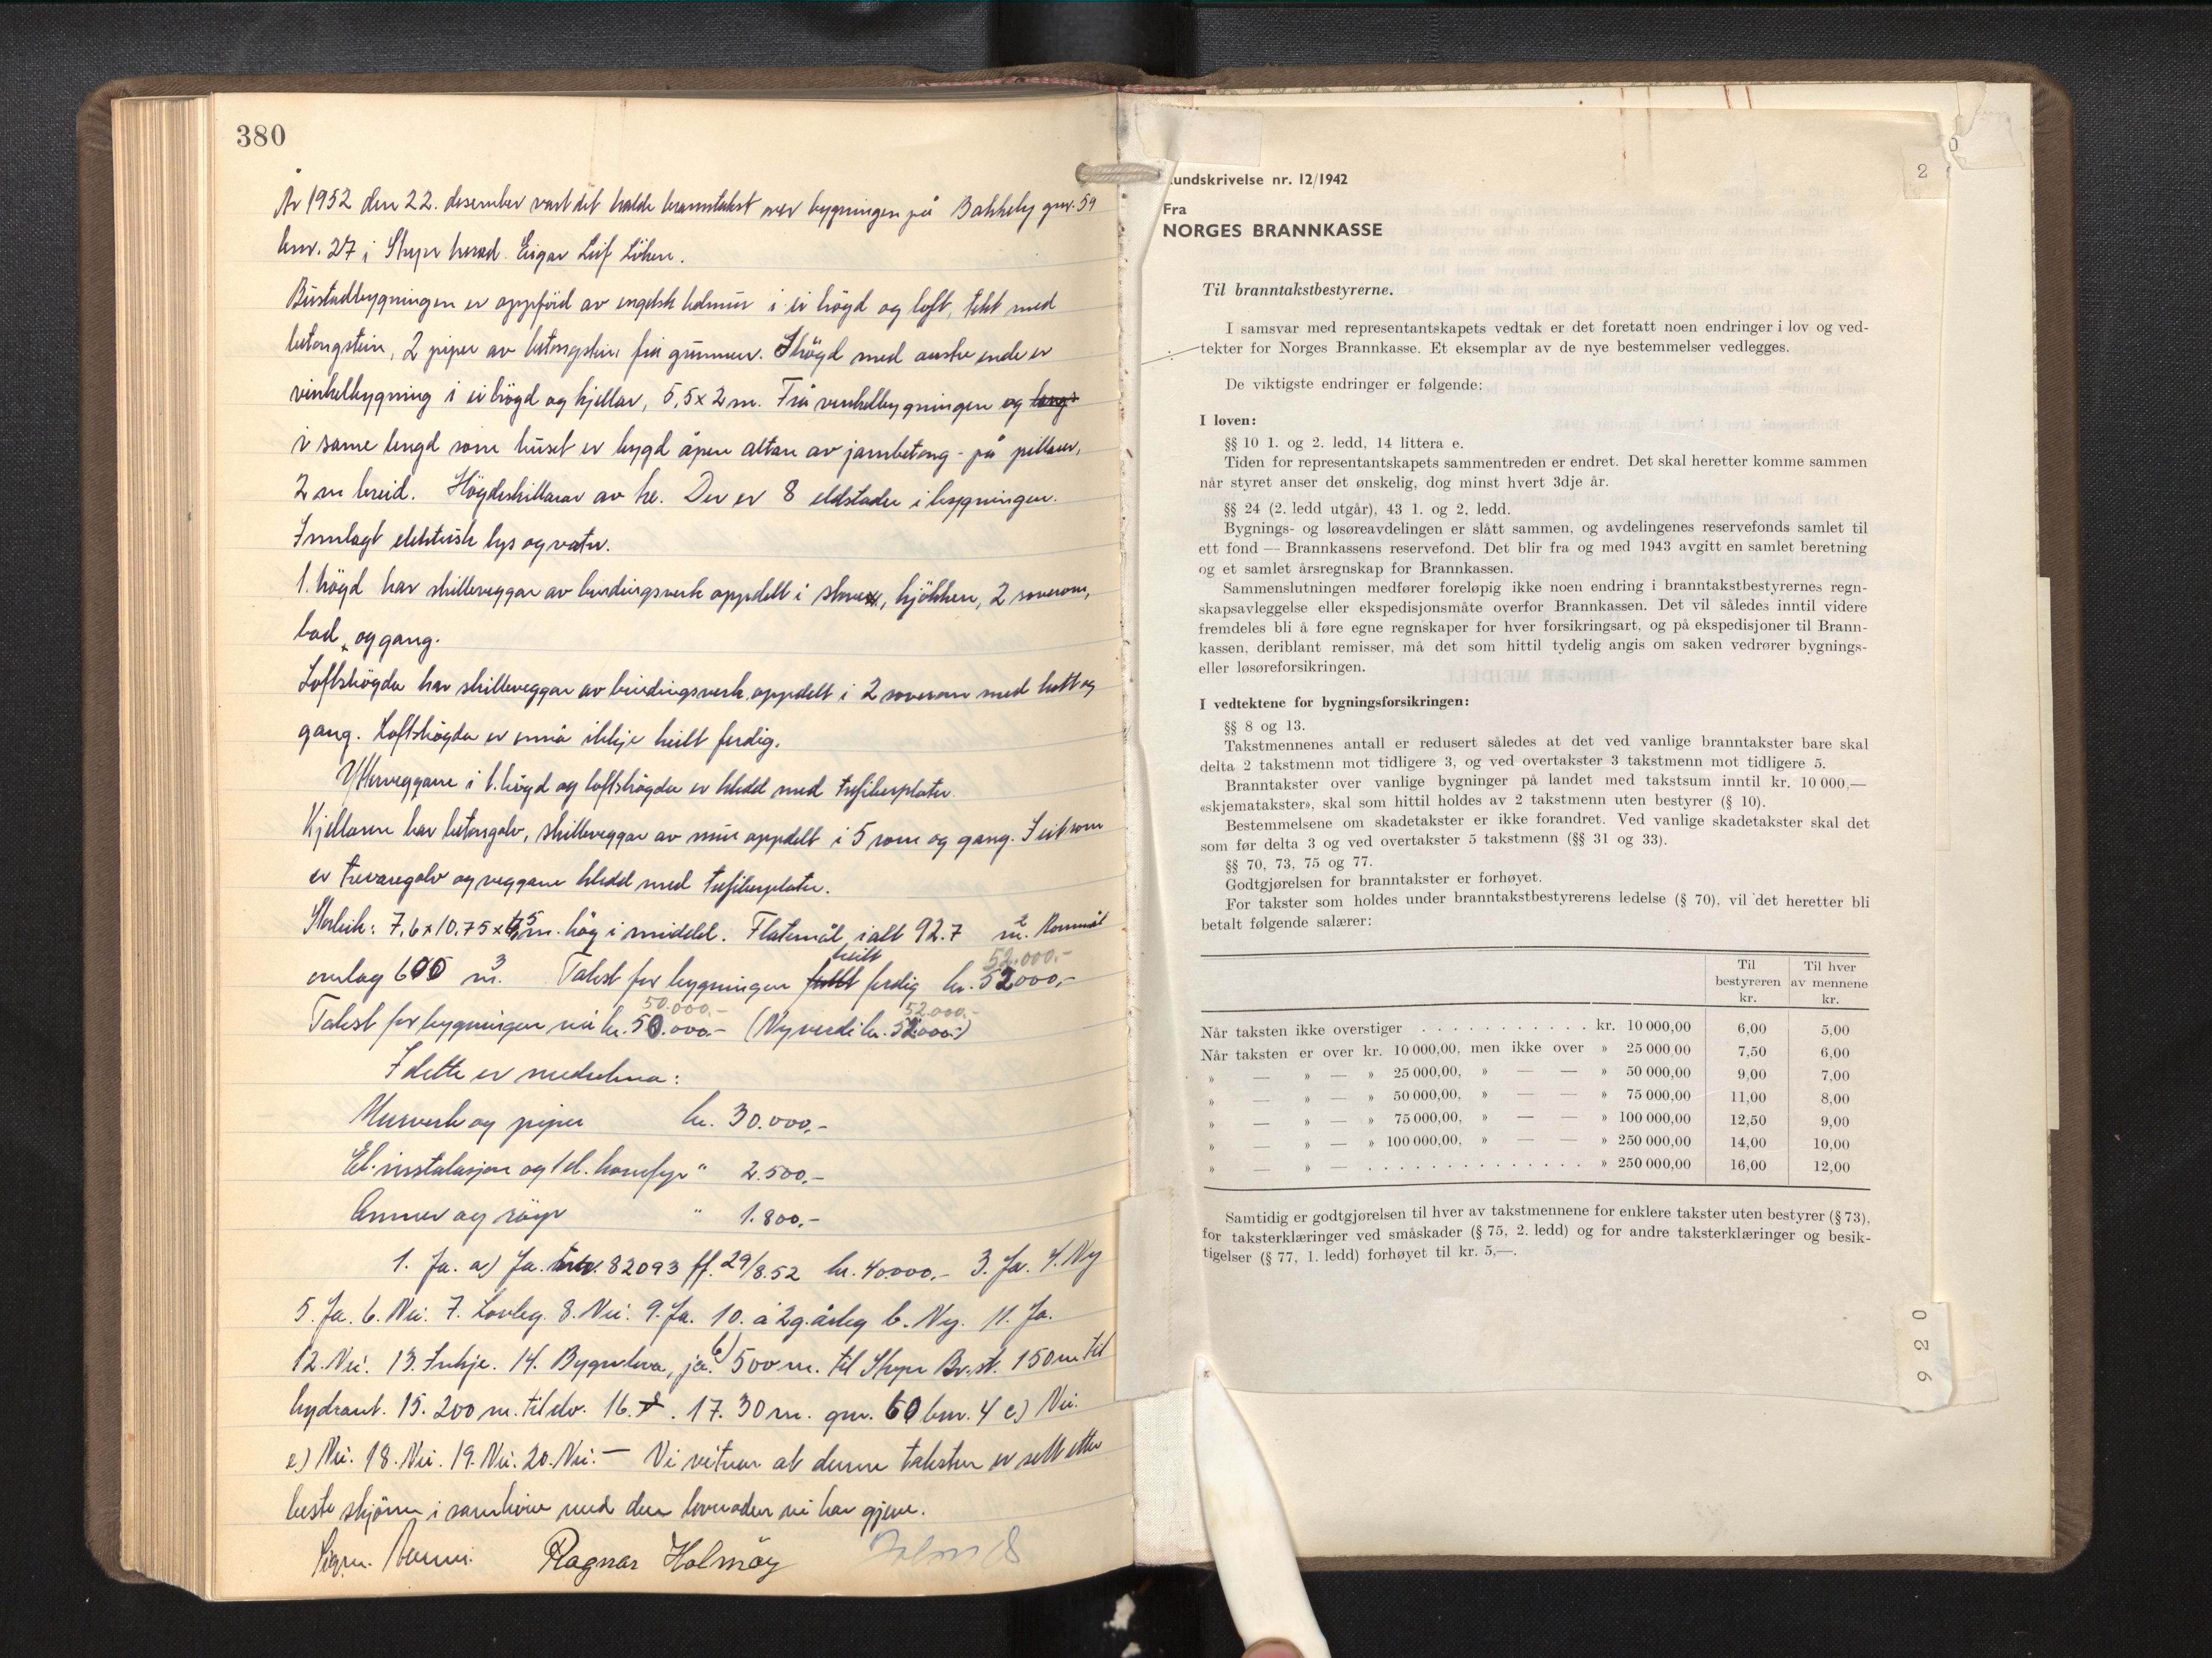 380
År 1952 den 22. desember vart det halde branntakst over bygningen på Bakkely gnr. 59
bnr. 27 i Stryn herad. Eigar Leif Löken.
Bustadbygningen er oppförd av engelsk holmur i ei högd og loft, tekt med
betongstein, 2 piper av betongstein frå grunnen. I högd med austre ende er
vinkelbygning i ei högd og kjellar, 5,5 x 2 m. Frå vinkelbygningen og
i same lengd som huset er bygd åpen altan av jarnbetong på pillarer,
2 m breid. Högdeskillarar av tre. Der er 8 eldstader i bygningen.
Innlagt elektrisk lys og vatn.
1. högd har skilleveggar av bindingsverk oppdelt i stove, kjökken, 2 soverom,
bad og gang.
Loftshögda har skilleveggar av bindingsverk oppdelt i 2 soverom med kott og
gang. Loftshögda er ennå ikkje heilt ferdig.
Ytterveggane i 1. högd og loftshögda er kledd med trefiberplater.
Kjellaren har betongolv, skilleveggar av mur oppdelt i 5 rom og gang. I eit rom
er trevaregolv og veggane kledd med trefiberplater.
Storleik: 7,6 x 10,75 x 6,5 m. høg i middel. Flatemål ialt 92.7 m². Rommål
omlag 605 m³. Takst for bygningen heilt ferdig kr. 52000,-
52.000.-
Takst for bygningen nå kr. 50.000.- (Nyverdi kr. 52000.-)
50.000.- 52.000.-
I dette er medrekna:
Murverk og piper kr. 30.000,-
El. instalasjon og 1 el. komfyr " 2.500,-
Omner og röyr " 1.800,-
1. Ja. a) Ja. 82093 ff. 29/8.52 kr. 40000.- 3. Ja. 4. Ny
5. Ja. 6. Nei. 7. Lovleg. 8. Nei. 9. Ja. 10. a 2 g. årleg b. Ny. 11. Ja.
12. Nei. 13. Inkje. 14. Bygn.lova, ja. b) 500 m. til Stryn Br.st. 150 m til
hydrant. 15. 200 m. til elv. 16. 17. 30 m. gnr. 60 bnr. 4 c) Nei.
e) Nei. 18. Nei. 19. Nei. 20. Nei. — Vi vitnar at denne taksten er sett etter
beste skjönn i samhöve med den lovnaden vi har gjeve.
Ragnar Holmøy
undskrivelse nr. 12/1942
2
Fra
NORGES BRANNKASSE
Til branntakstbestyrerne.
I samsvar med representantskapets vedtak er det foretatt noen endringer i lov og ved-
tekter for Norges Brannkasse. Et eksemplar av de nye bestemmelser vedlegges.
De viktigste endringer er følgende:
I loven:
§§ 10 1. og 2. ledd, 14 littera e.
Tiden for representantskapets sammentreden er endret. Det skal heretter komme sammen
når styret anser det ønskelig, dog minst hvert 3dje år.
§§ 24 (2. ledd utgår), 43 1. og 2. ledd.
Bygnings- og løsøreavdelingen er slått sammen, og avdelingenes reservefonds samlet til
ett fond — Brannkassens reservefond. Det blir fra og med 1943 avgitt en samlet beretning
og et samlet årsregnskap for Brannkassen.
Sammenslutningen medfører foreløpig ikke noen endring i branntakstbestyrernes regn-
skapsavleggelse eller ekspedisjonsmåte overfor Brannkassen. Det vil således inntil videre
fremdeles bli å føre egne regnskaper for hver forsikringsart, og på ekspedisjoner til Brann-
kassen, deriblant remisser, må det som hittil tydelig angis om saken vedrører bygnings-
eller løsøreforsikringen.
I vedtektene for bygningsforsikringen:
§§ 8 og 13.
Takstmennenes antall er redusert således at det ved vanlige branntakster bare skal
delta 2 takstmenn mot tidligere 3, og ved overtakster 3 takstmenn mot tidligere 5.
Branntakster over vanlige bygninger på landet med takstsum inntil kr. 10 000,—
«skjematakster», skal som hittil holdes av 2 takstmenn uten bestyrer (§ 10).
Bestemmelsene om skadetakster er ikke forandret. Ved vanlige skadetakster skal det
som før delta 3 og ved overtakster 5 takstmenn (§§ 31 og 33).
§§ 70, 73, 75 og 77.
Godtgjørelsen for branntakster er forhøyet.
For takster som holdes under branntakstbestyrerens ledelse (§ 70), vil det heretter bli
betalt følgende salærer:
Til bestyreren kr. Til hver av mennene kr.
Når taksten ikke overstiger . . . . . . . . . . . kr. 10 000,00 6,00 5,00
Når taksten er over kr. 10 000,00, men ikke over » 25 000,00 7,50 6,00
» — » — » 25 000,00, » — — » 50 000,00 9,00 7,00
» — » — » 50 000,00, » — — » 75 000,00 11,00 8,00
» — » — » 75 000,00, » — — » 100 000,00 12,50 9,00
» — » — » 100 000,00, » — — » 250 000,00 14,00 10,00
» — » — . . . . . . . . . . . . . . . » 250 000,00 16,00 12,00
Samtidig er godtgjørelsen til hver av takstmennene for enklere takster uten bestyrer (§ 73),
for taksterklæringer ved småskader (§ 75, 2. ledd) og for andre taksterklæringer og besik-
tigelser (§ 77, 1. ledd) forhøyet til kr. 5,—.
9 2 0